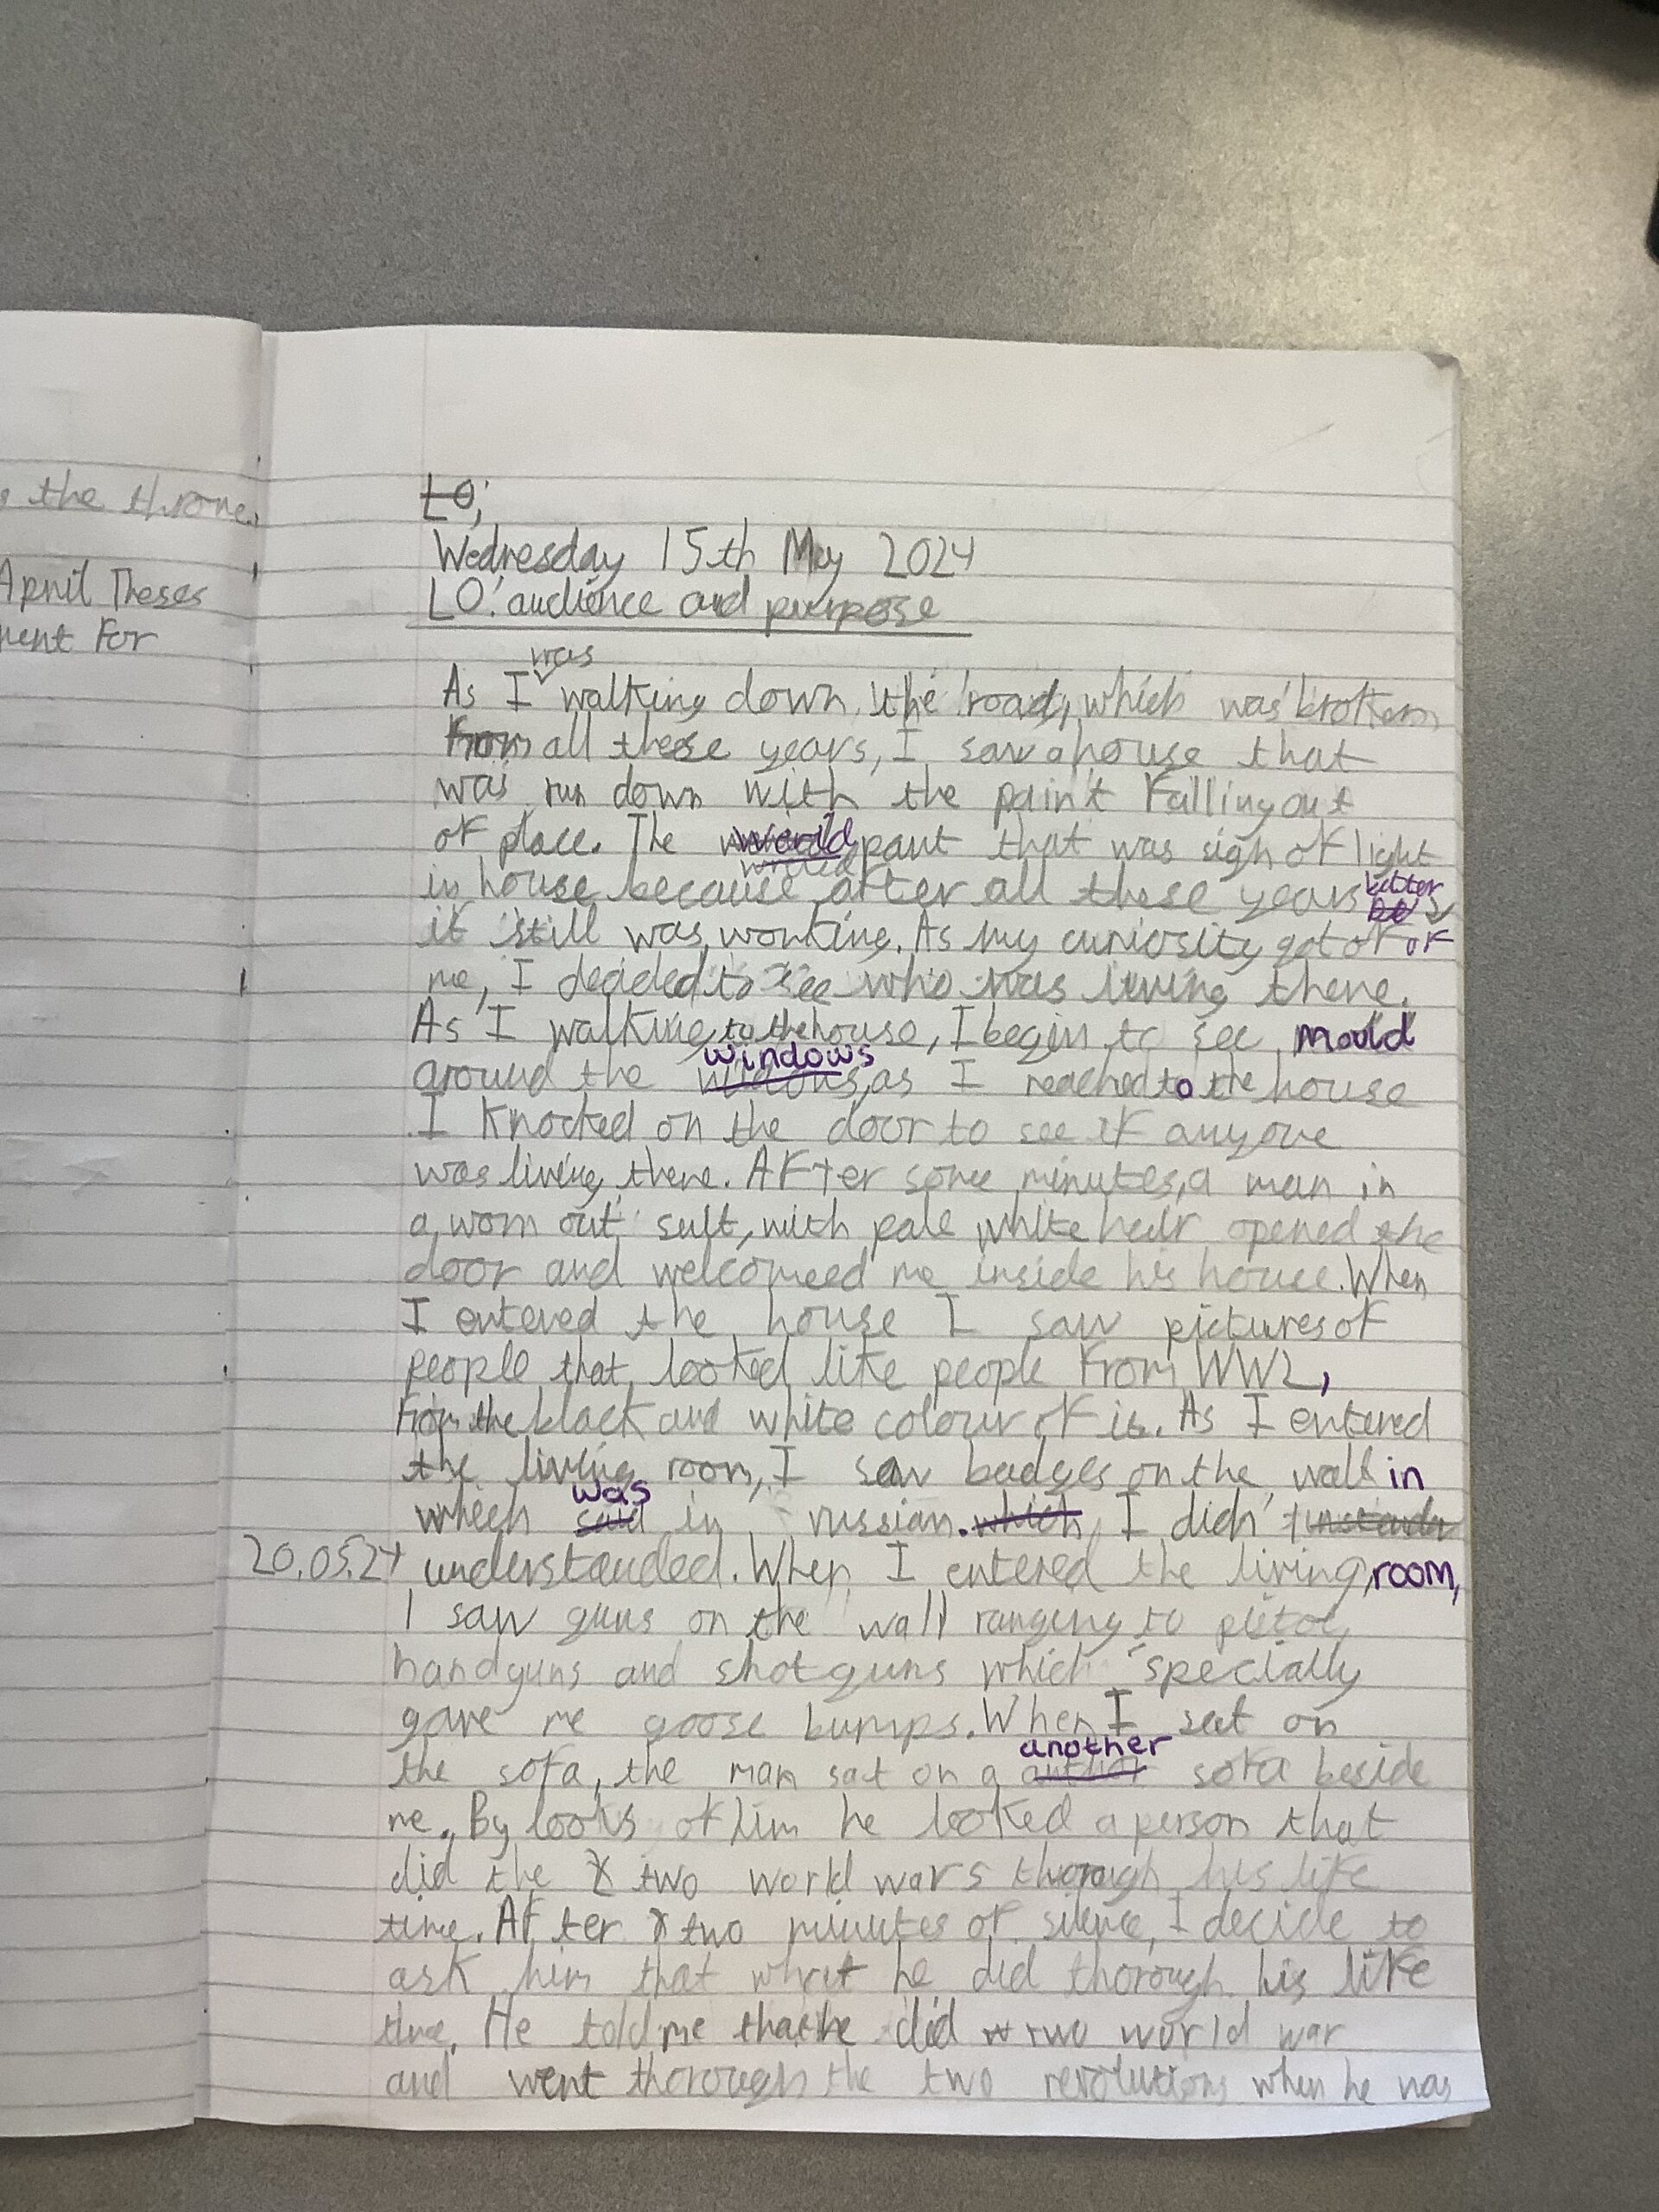 s the throne.
April Theses
ment For
LO;
Wednesday 15th May 2024
LO: audience and purpose
was
As I walking down the road, which was broken
from all these years, I saw a house that
was run down with the paint Falling out
of place. The weird part that was sign of light
in house because after all these years better
it still was working. As my curiosity got of of
me, I decided to see who was living there.
As I walking to the house, I begin to see mould
windows
around the widows, as I reached to the house
I knocked on the door to see if anyone
was living there. AFter some minutes, a man in
a worn out suit, with pale white hair opened the
door and welcomeed me inside his house. When
I entered the house I saw pictures of
people that looked like people From WW2,
From the black and white colour of it. As I entered
the living room, I saw badges on the wall in
was
which said in russian. which I didn't
20.05.24 understanded. When I entered the living room,
I saw guns on the wall ranging to pistol,
handguns and shotguns which specially
gave me goose bumps. When I sat on
another
the sofa, the man sat on a sofa beside
me. By looks of him he looked a person that
did the two world wars thorough his life
time. AFter two minutes of silence, I decide to
ask him that what he did thorough his life
time. He told me that he did two world war
and went thorough the two revolutions when he was